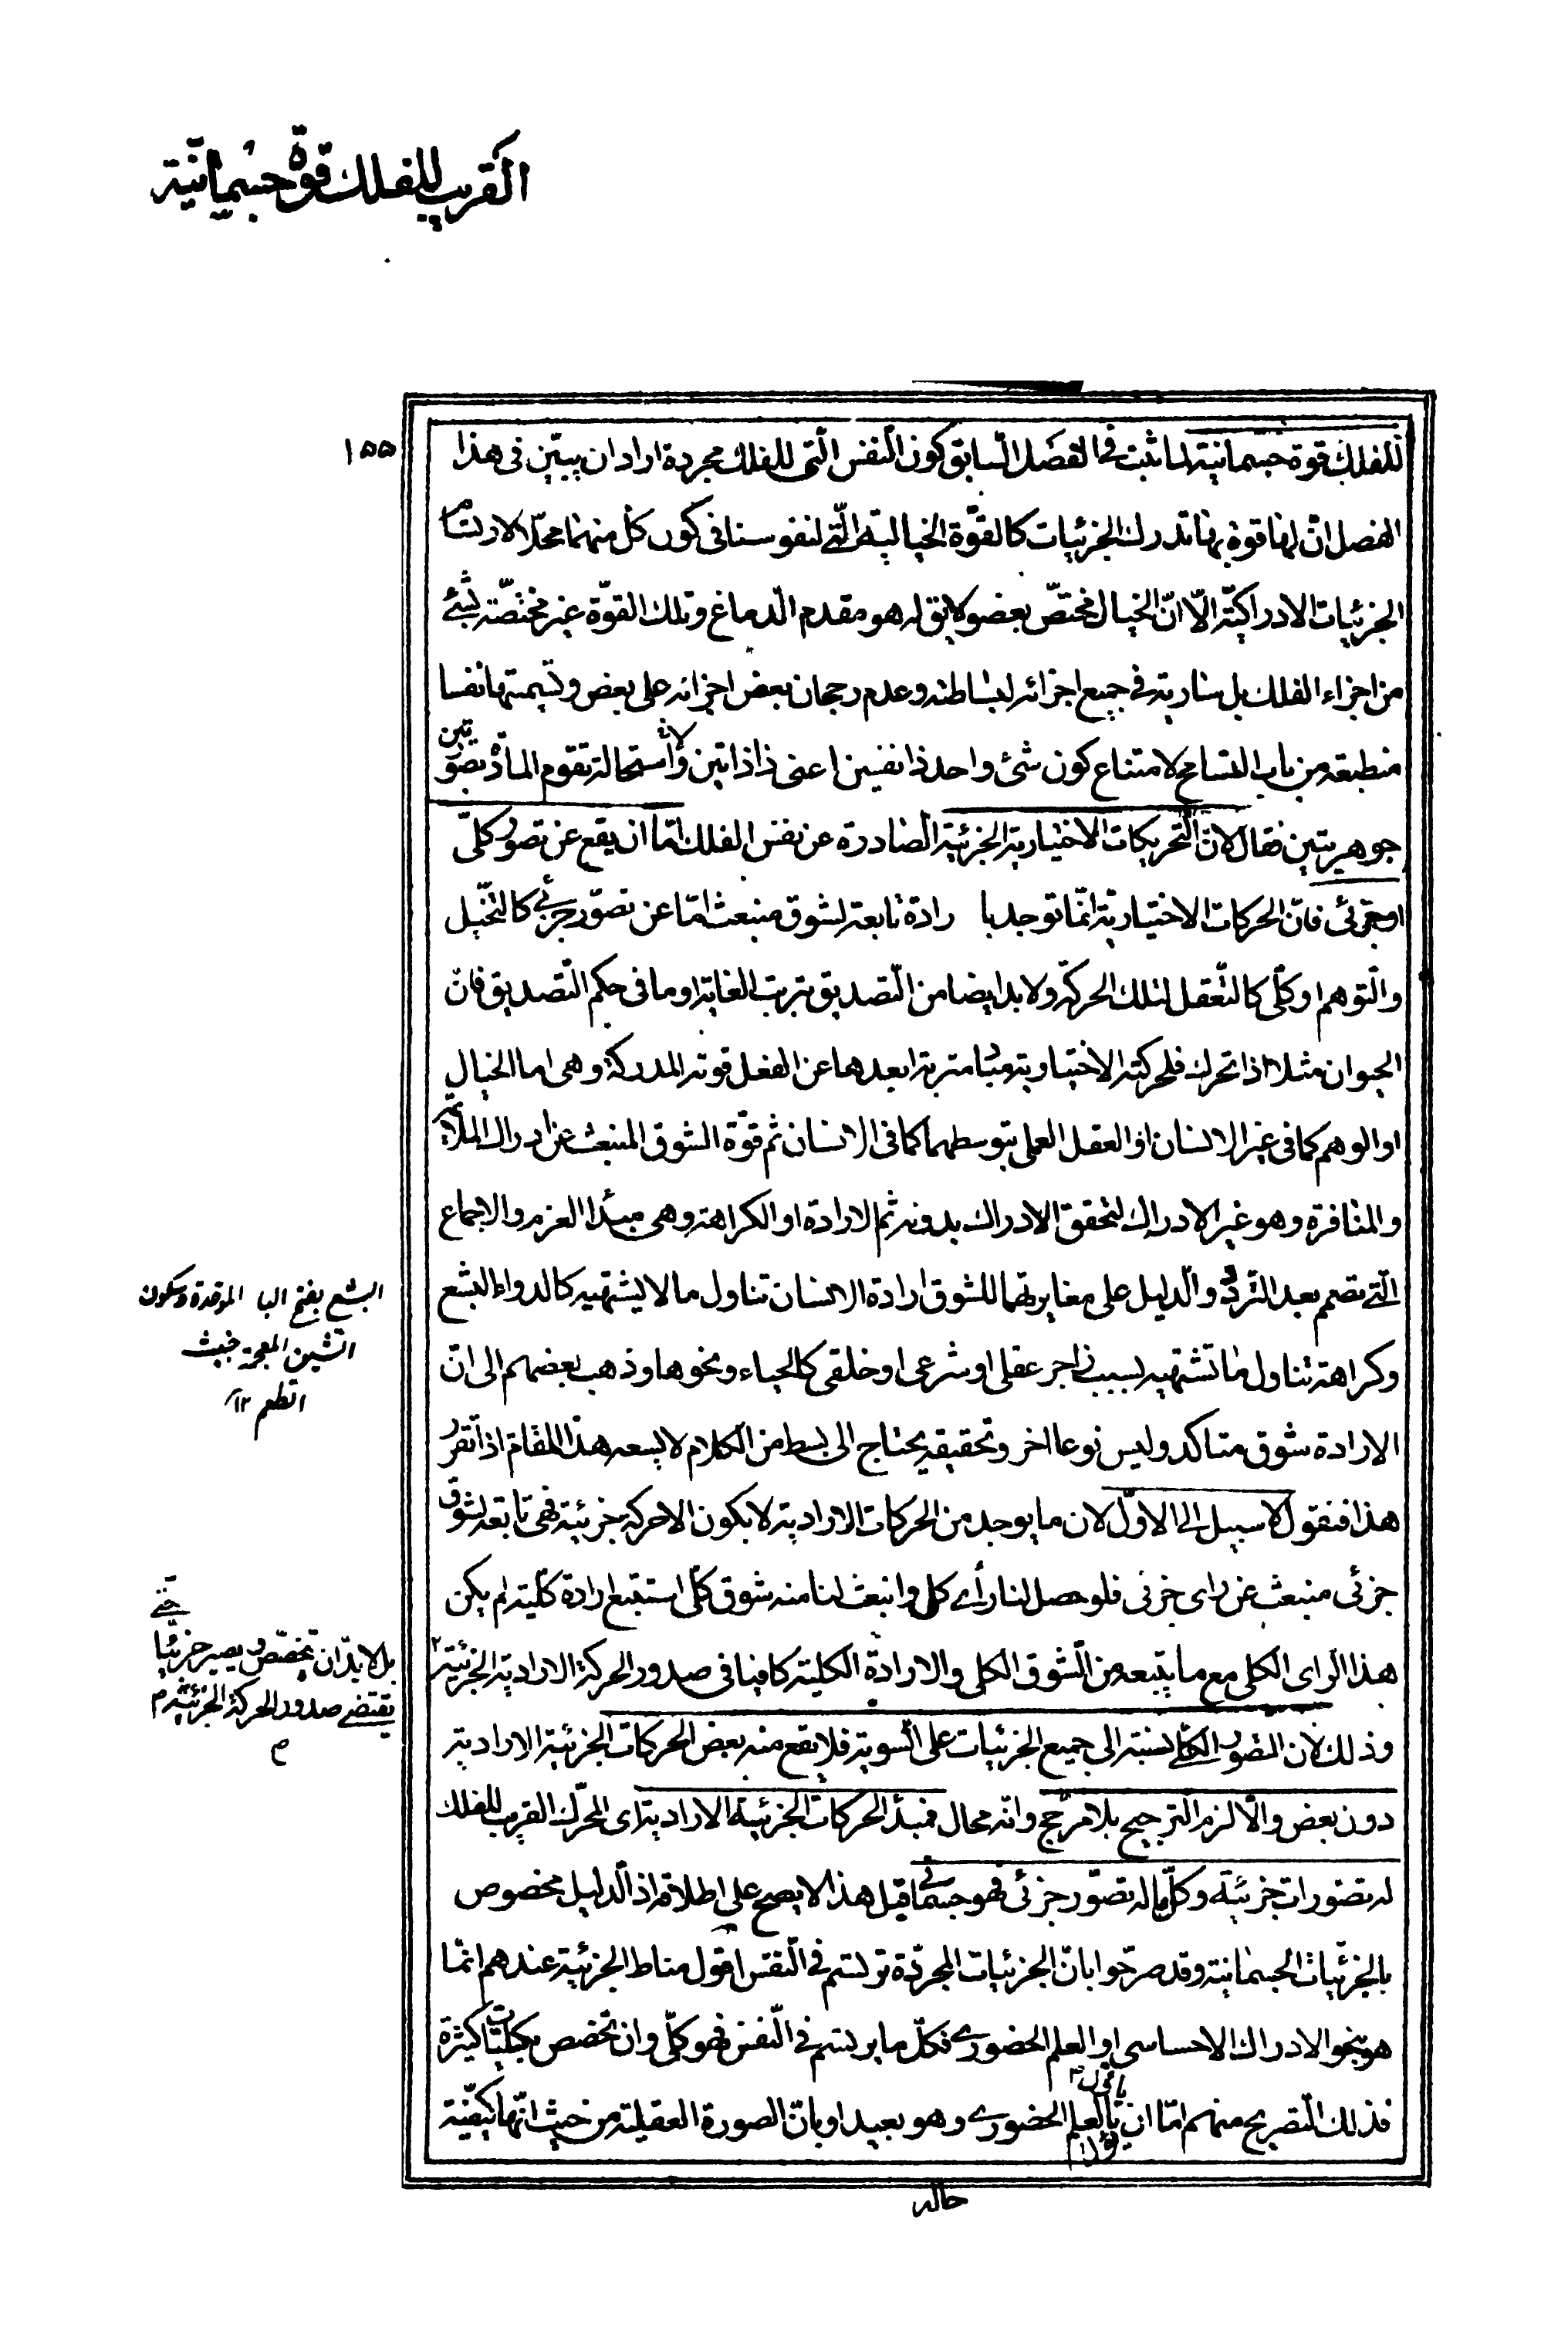 القريب للفلك قوة جسمانية
١٥٥
للفلك قوة جسمانية لما ثبت فى الفصل السابق كون النفس التى للفلك مجردة اراد ان يبين فى هذا
الفصل ان لها قوة بها تدرك الجزئيات كالقوة الخيالية التى لنفوسنا فى كون كل منهما محلا لارتسام
الجزئيات الادراكية الا ان الخيال مختص بعضو لايق له هو مقدم الدماغ وتلك القوة غير مختصة بشئ
من اجزاء الفلك بل سارية فى جميع اجزائه لبساطته وعدم رجحان بعض اجزائه على بعض وتسميتها نفسا
منطبعة من باب التسامح لامتناع كون شئ واحد ذا نفسين اعنى ذا ذاتين ولاستحالة تقوم المادة بصورتين
جوهريتين فقال لان التحريكات الاختيارية الجزئية الصادرة عن نفس الفلك اما ان يقع عن تصور كلى
او جزئى فان الحركات الاختيارية انما توجد با رادة تابعة لشوق منبعث اما عن تصور جزئى كالتخيل
والتوهم او كلى كالتعقل لتلك الحركة ولا بد ايضا من التصديق بترتب الغاية او ما فى حكم التصديق فان
الحيوان مثلا اذا تحرك فلحركته الاختيارية مباد مترتبة ابعدها عن الفعل قوته المدركة وهى اما الخيال
او الوهم كما فى غير الانسان او العقل العملى بتوسطهما كما فى الانسان ثم قوة الشوق المنبعث عن ادراك الملائم
والمنافرة وهو غير الادراك لتحقق الادراك بدونه ثم الارادة او الكراهة وهى مبدأ العزم والاجماع
التى تصمم بعد التردد والدليل على مغايرتها للشوق ارادة الانسان تناول ما لا يشتهيه كالدواء البشع
وكراهة تناول ما تشتهيه بسبب زاجر عقلى او شرعى او خلقى كالحياء ونحوها وذهب بعضهم الى ان
الارادة شوق متاكد وليس نوعا اخر وتحقيقه يحتاج الى بسط من الكلام لا يسعه هذا المقام اذا تقرر
هذا فنقول لا سبيل الى الاول لان ما يوجد من الحركات الارادية لا يكون الا حركة جزئية فهى تابعة لشوق
جزئى منبعث عن راى جزئى فلو حصل لنا رأى كلى وانبعث لنا منه شوق كلى استتبع ارادة كلية لم يكن
هذا الراى الكلى مع ما يتبعه من الشوق الكلى والارادة الكلية كافيا فى صدور الحركة الارادية الجزئية ٢
وذلك لان التصور الكلى نسبته الى جميع الجزئيات على السوية فلا يقع منه بعض الحركات الجزئية الارادية
دون بعض والا لزم الترجيح بلا مرجح وانه محال فمبدأ الحركات الجزئية الارادية اى المحرك القريب للفلك
له تصورات جزئية وكل ما له تصور جزئى فهو جسمانى قيل هذا لا يصح على اطلاقه اذ الدليل مخصوص
بالجزئيات الجسمانية وقد صرحوا بان الجزئيات المجردة ترتسم فى النفس اقول مناط الجزئية عندهم انما
هو بنحو الادراك الاحساسى او العلم الحضورى فكل ما يرتسم فى النفس فهو كلى وان تخصص بكليات كثيرة
فذلك التصريح منهم اما ان بالعلم الحضورى وهو بعيد او بان الصورة العقلية من حيث انها كيفية
حاله
البشع بفتح البا الموحدة وسكون
الشين المعجمة خبيث
الطعم ١٢
حتى
بل لا بد ان يخصص ويصير جزئيا
يقتضى صدور الحركة الجزئية م
م